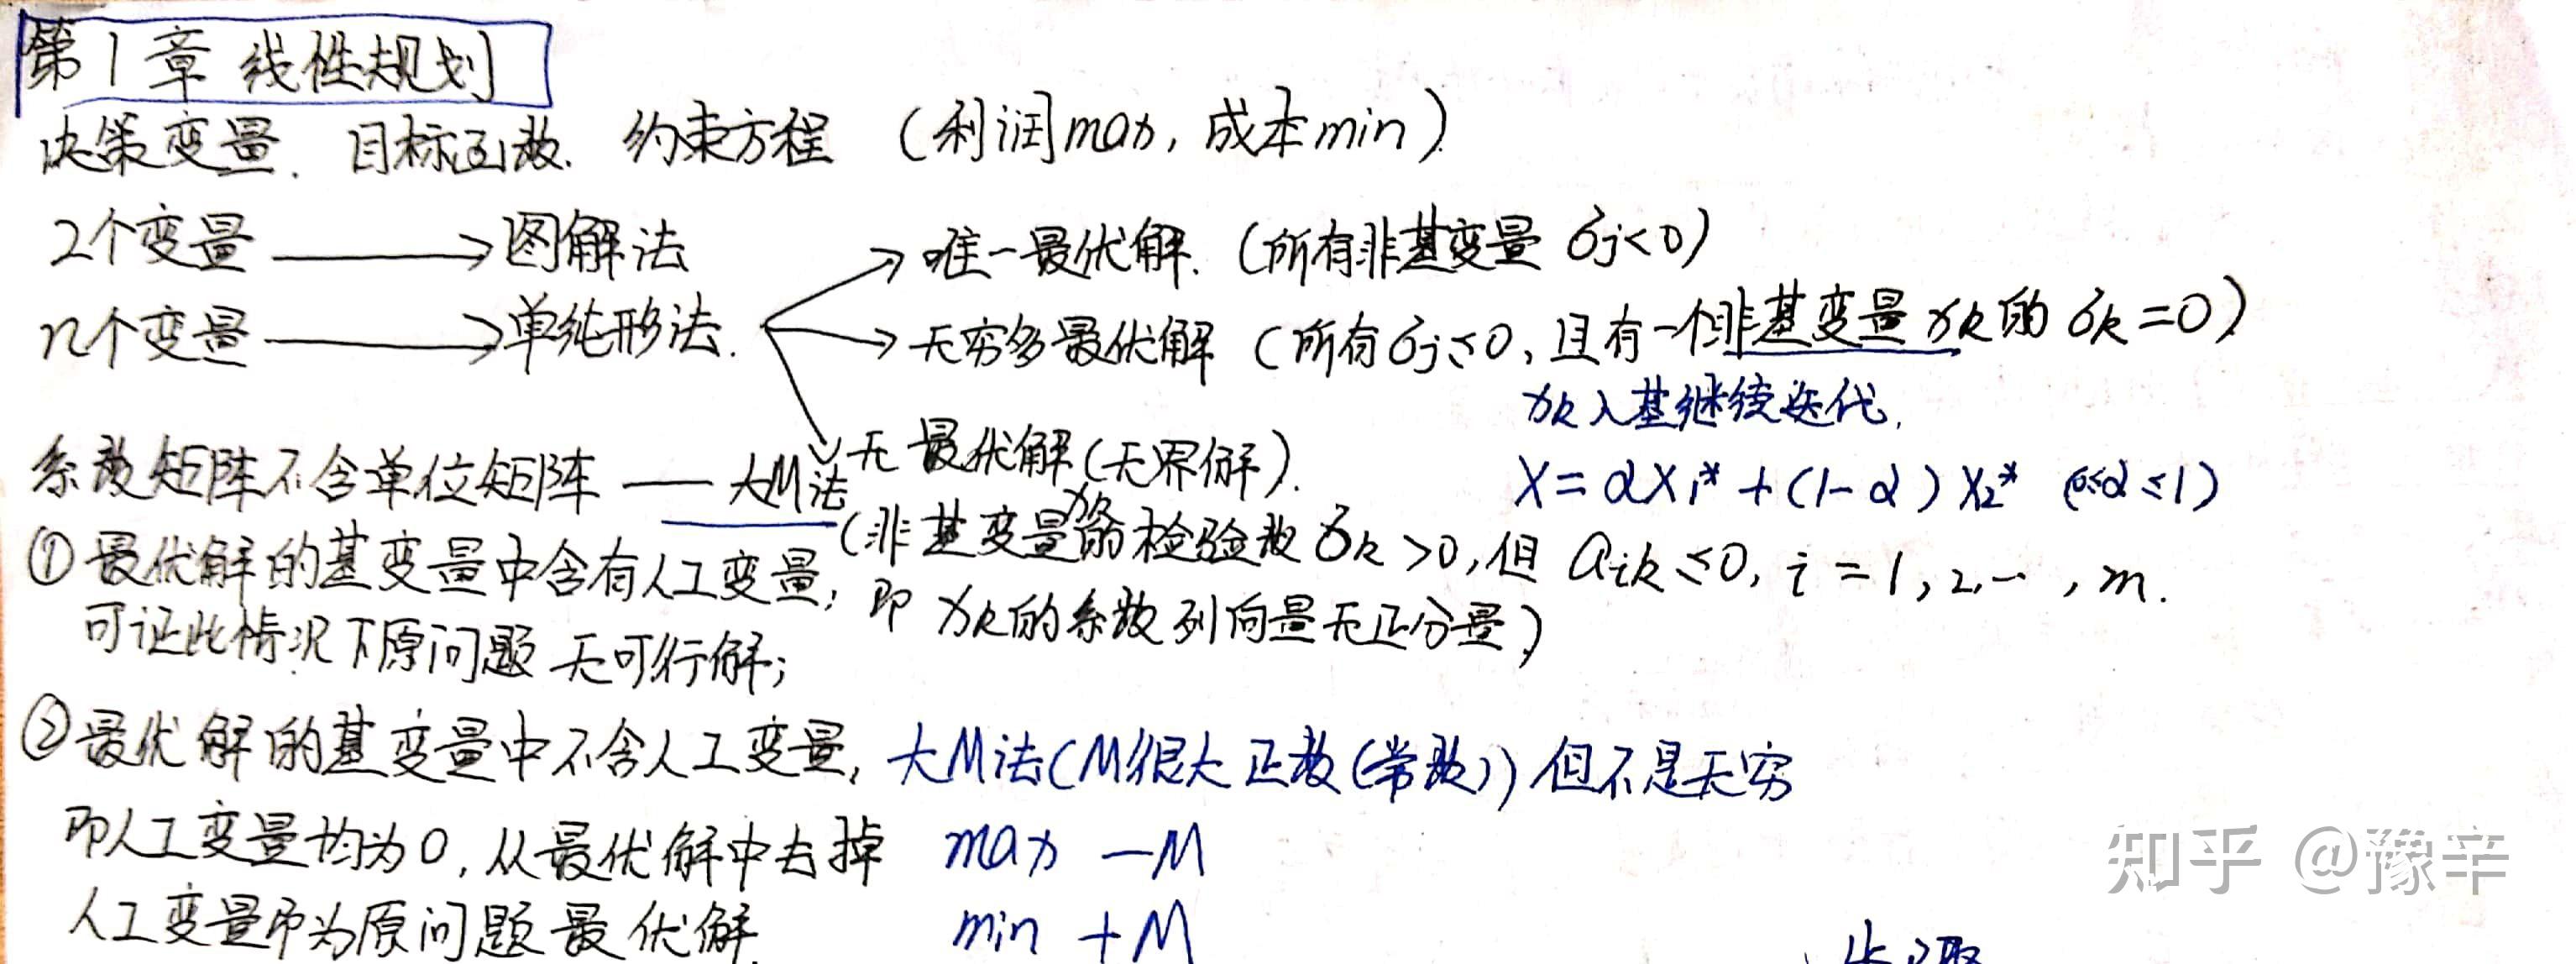 第1章 线性规划
决策变量. 目标函数. 约束方程 (利润max, 成本min)
2个变量 → 图解法
n个变量 → 单纯形法.
→ 唯一最优解. (所有非基变量 σj<0)
→ 无穷多最优解 (所有σj≤0, 且有一个非基变量xk的 σk=0)
xk入基继续迭代,
X=αX₁*+(1-α)X₂* (0≤α≤1)
无最优解(无界解).
(非基变量xk的检验数σk>0, 但 aik≤0, i=1,2,…,m.
即 xk的系数列向量无正分量)
系数矩阵不含单位矩阵 —— 大M法
①最优解的基变量中含有人工变量,
可证此情况下原问题无可行解;
②最优解的基变量中不含人工变量,
即人工变量均为0, 从最优解中去掉
人工变量即为原问题最优解.
大M法(M很大正数(常数)) 但不是无穷
max -M
min +M
步骤
知乎 @豫辛